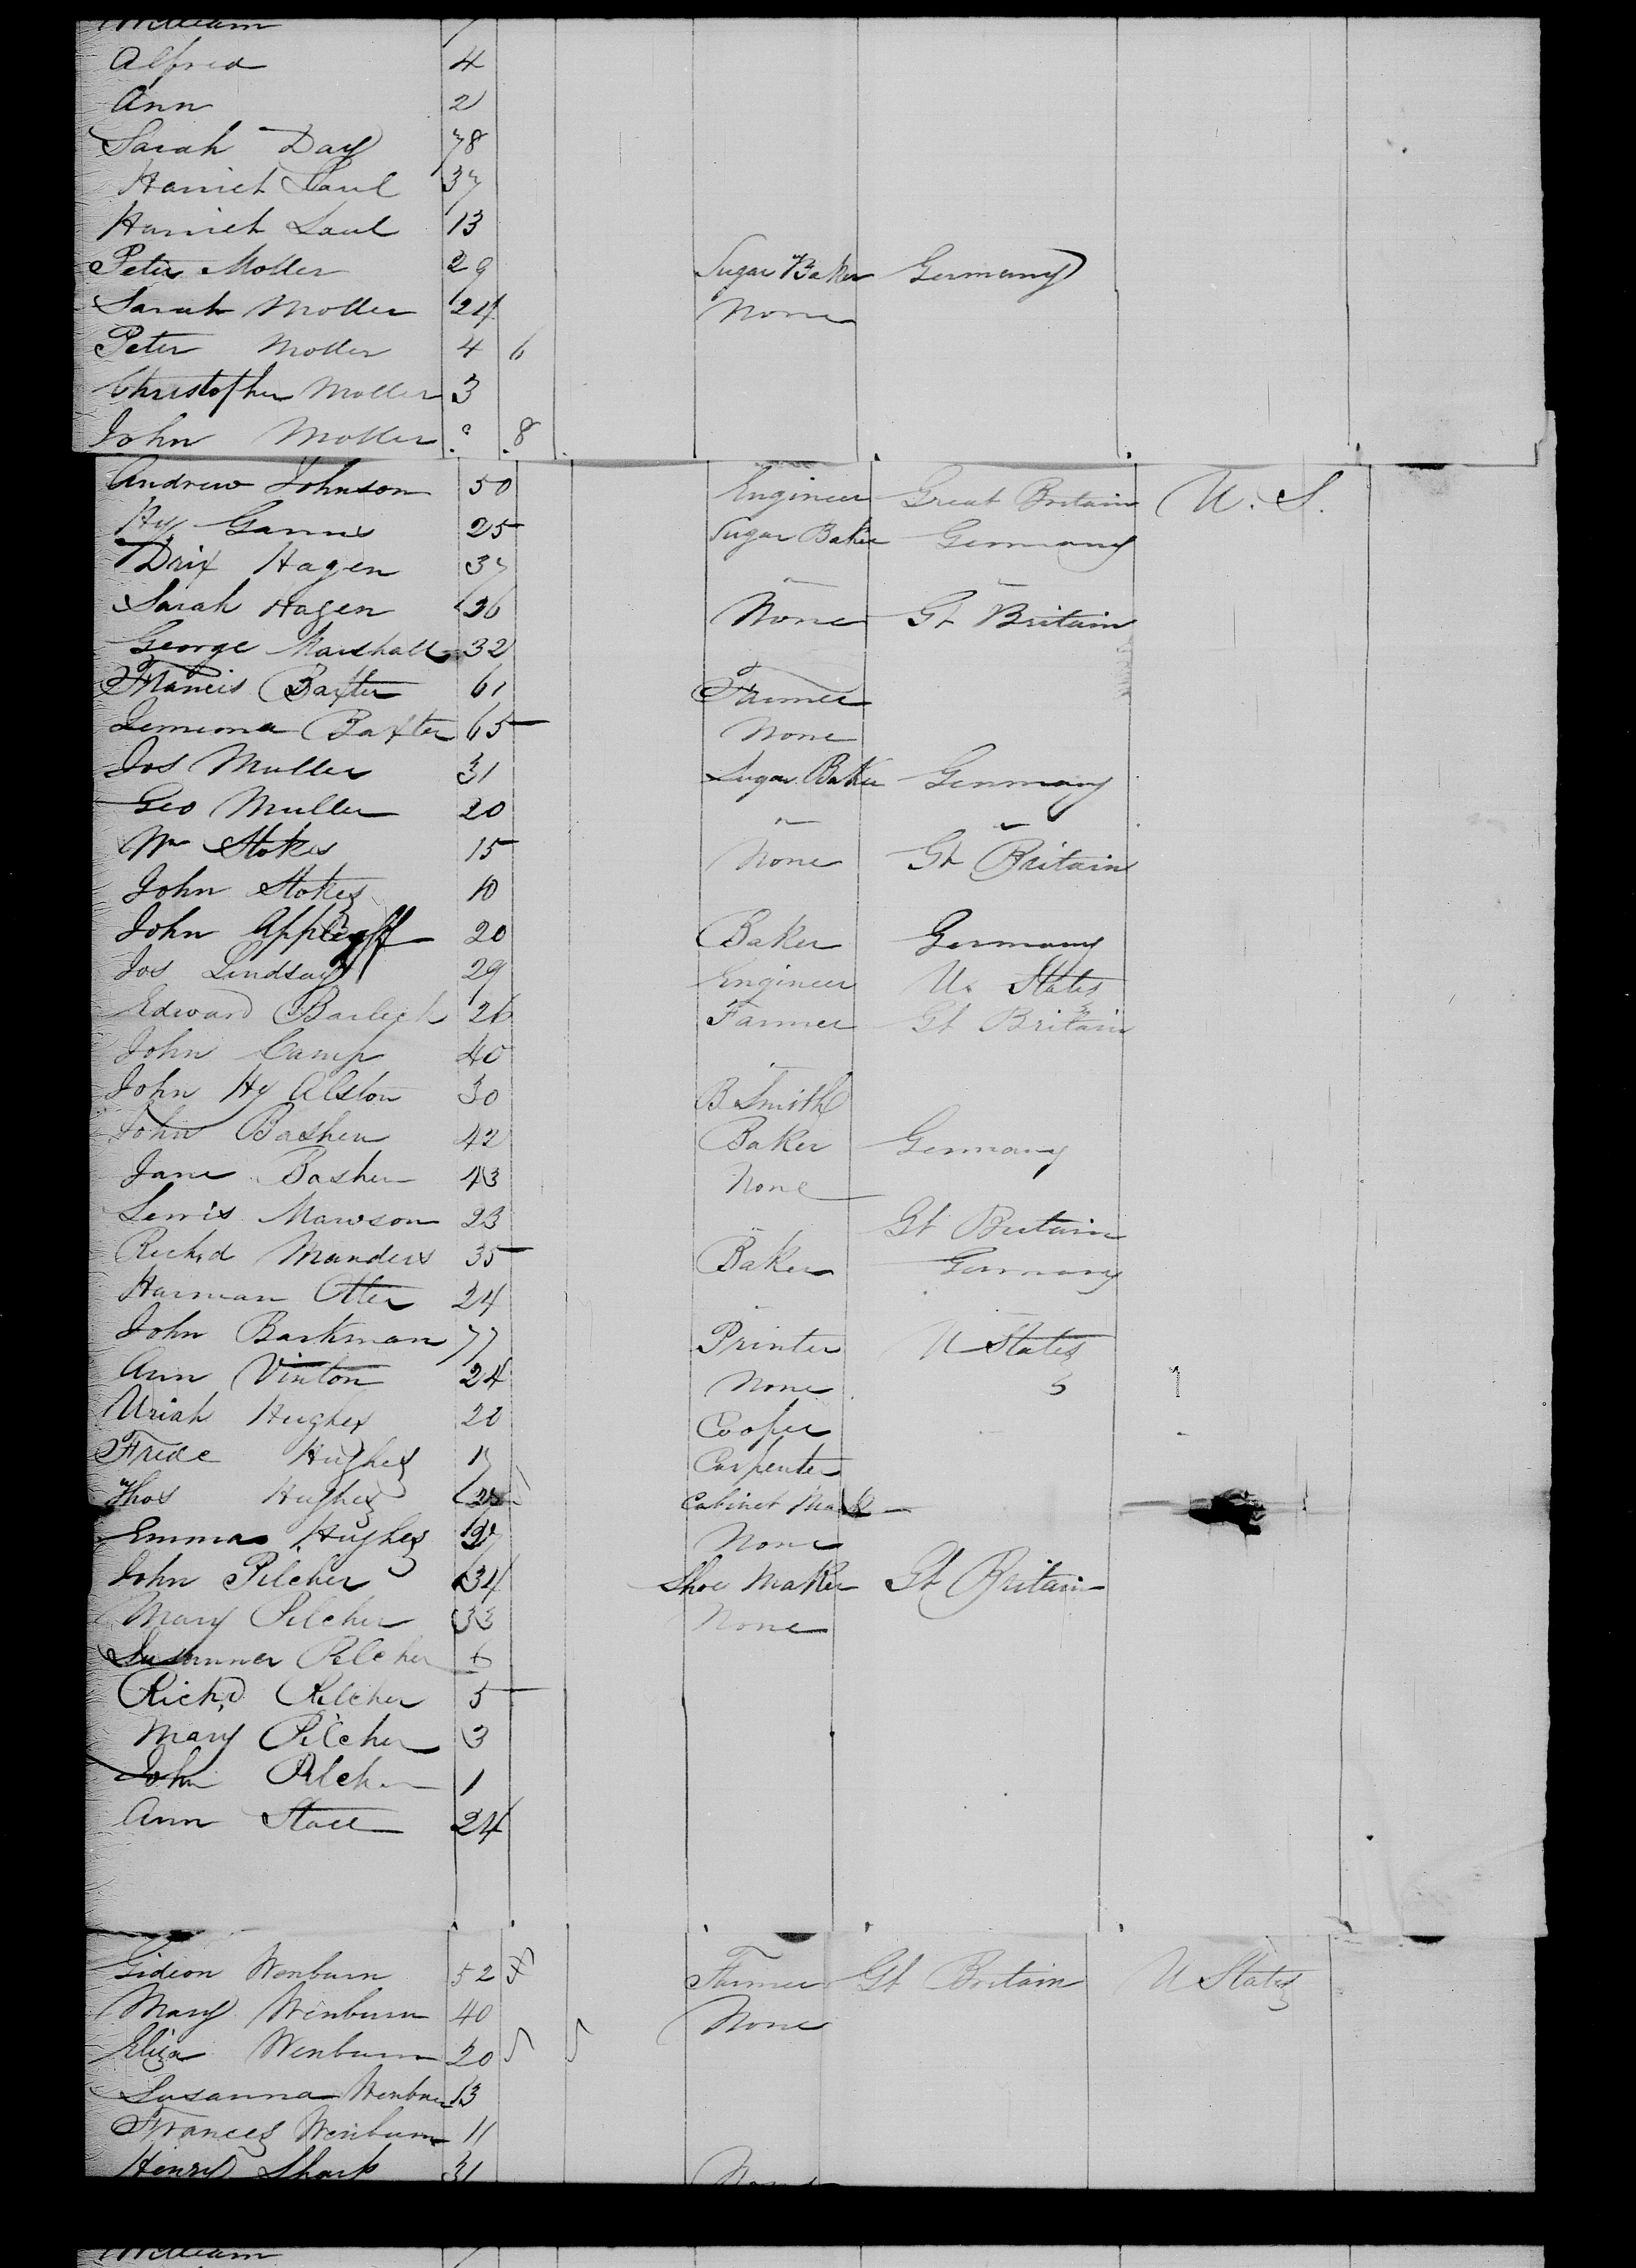 William 7
Alfred 4
Ann 2
Sarah Day 78
Harriet Saul 37
Harriet Saul 13
Peter Moller 29 Sugar Baker Germany
Sarah Moller 24 None
Peter Moller 4 6
Christopher Moller 3
John Moller 8
Andrew Johnson 50 Engineer Great Britain U. S.
Hy 25 Sugar Baker Germany
Hagen 37 " "
Sarah Hagen 36 None Gt Britain
George Marshall 32
Francis Baxter 61 Farmer
Jemima Baxter 65 None
Jos Muller 31 Sugar Baker Germany
Geo Muller 20 " "
Wm Stokes 15 None Gt Britain
John Stokes 10
John 20 Baker Germany
Jos Lindsay 29 Engineer U. States
Edward 26 Farmer Gt Britain
John Camp 40 "
John Hy Alston 30 B Smith
John Bashen 42 Baker Germany
Jane Bashen 43 None
Lewis Mawson 23 " Gt Britain
Richd Manders 35 Baker Germany
Harman Otter 24 "
John Barkman 77 Printer U States
Ann Vinton 24 None
Uriah Hughes Cooper
Hughes Carpenter
Thos Hughes Cabinet Mak
Emma Hughes None
John Pilcher 34 Shoe Maker Gt Britain
Mary Pilcher 33 None
Susanner Pilcher 6
Richd Pilcher 5
Mary Pilcher 3
John Pilcher 1
Ann 24
Gideon Wenburn 52 Farmer Gt Britain U States
Mary Wenburn 40 None
Eliza Wenburn 20
Susanna Wenburn 13
Frances Wenburn 11
Henry Sharp 31 None
William